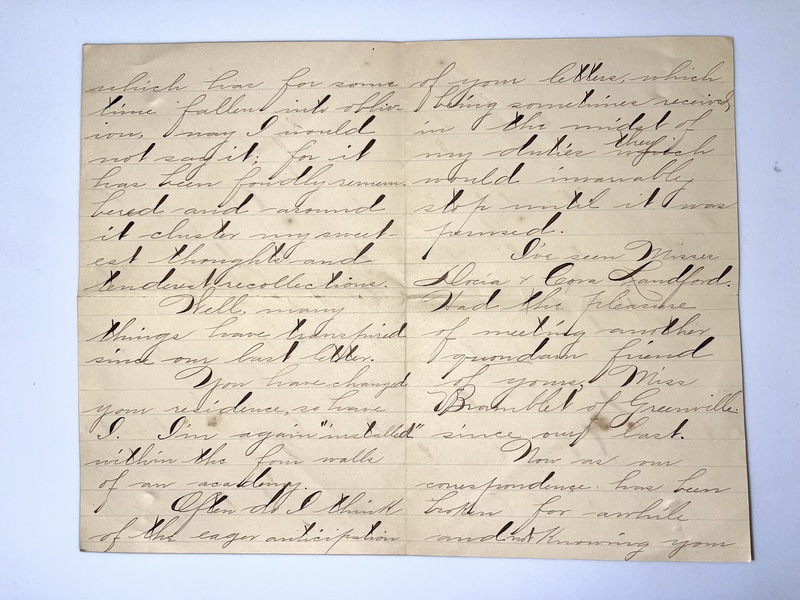 which has for some
time fallen into obliv-
ion, nay I would
not say it; for it
has been fondly remem-
bered and around
it cluster my sweet-
est thoughts and
tenderest recollections.
Well, many
things have transpired
since our last letter.
You have changed
your residence, so have
I. I'm again "installed"
within the four walls
of an academy.
Often do I think
of the eager anticipation
of your letters, which
being sometimes received
in the midst of
my duties which they
would invariably
stop until it was
perused.
I've seen Misses
Docia & Cora Landford.
Had the pleasure
of meeting another
quondam friend
of yours, Miss
Bramblet of Greenville
since our last.
Now as our
correspondence has been
broken for awhile
and not knowing your